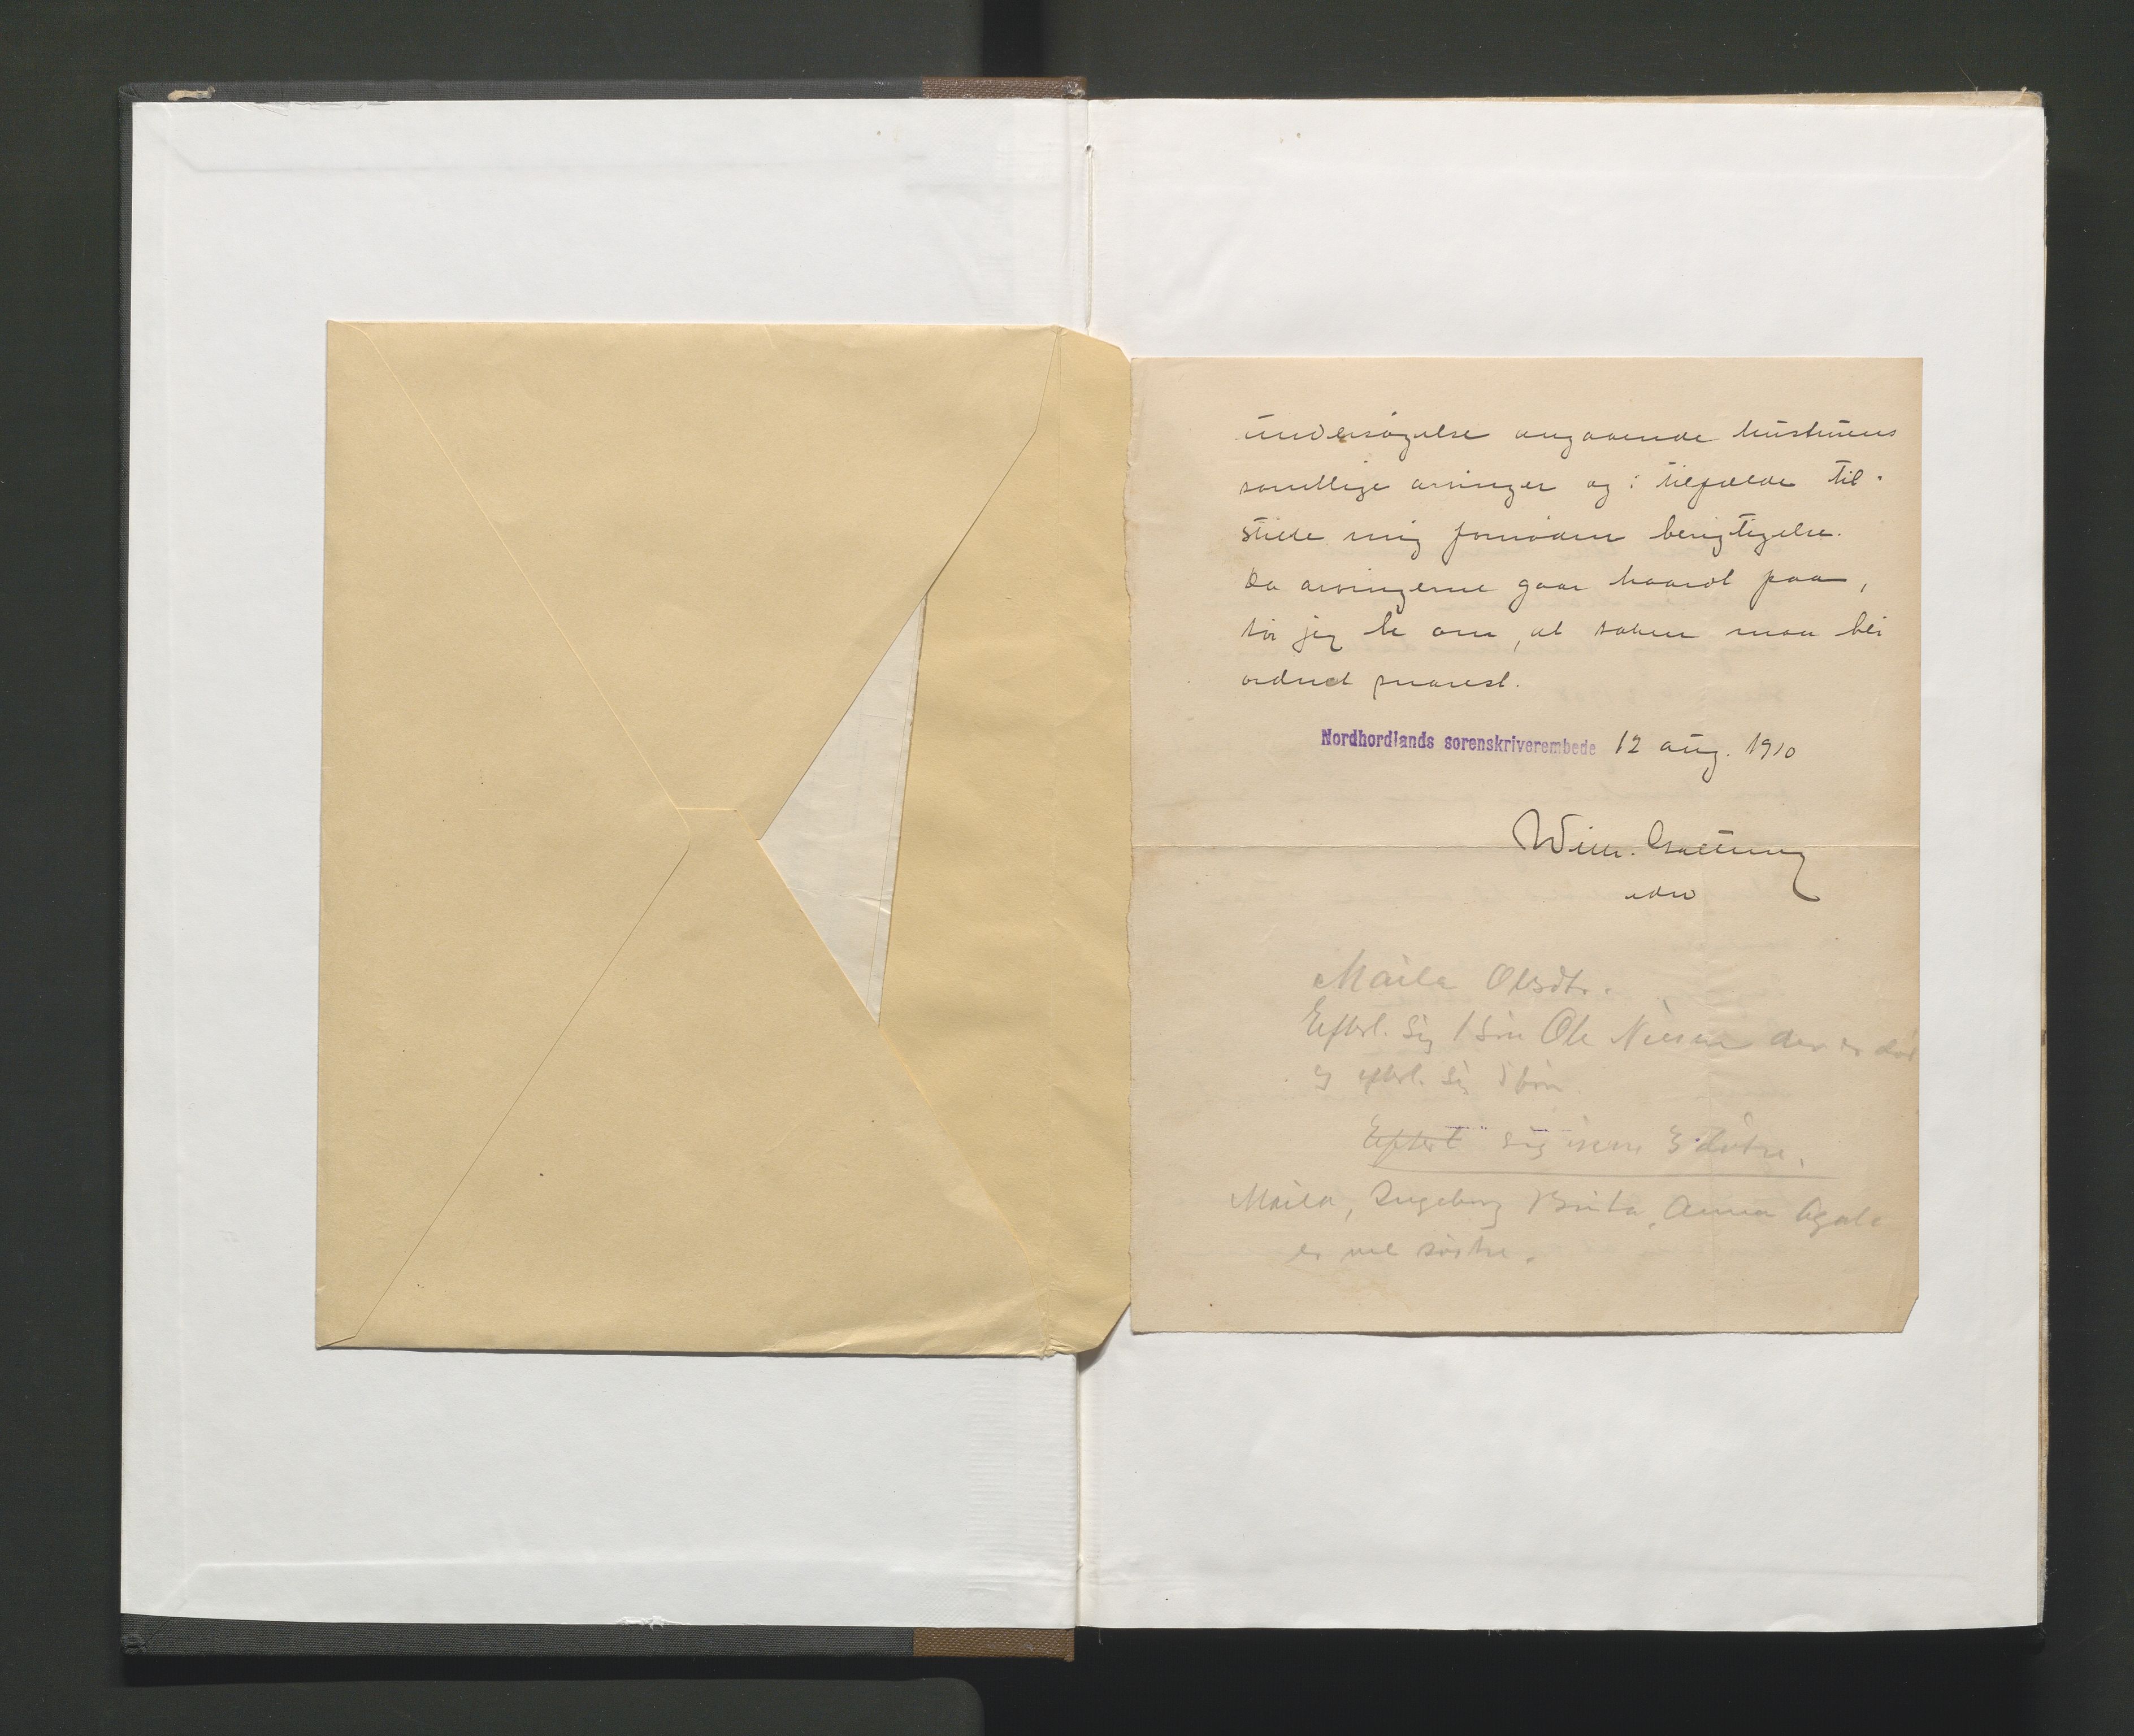 undersøgelse angaaende hustruens
samtlige arvinger og i tilfælde til-
stille mig fornøden berigtigelse.
Da arvingerne gaar haardt paa,
tør jeg be om, at saken maa bli
ordnet snarest.
Nordhordlands sorenskriverembede 12 aug. 1910
Wilh.
Marta Olsdtr.
Efterl. sig 1 søn Ole Nilsen der er død
og efterl. sig 5 børn
Efterl sig 3 døtre.
Marta, Ingeborg Brita, Anna Agate
er vel søstre.